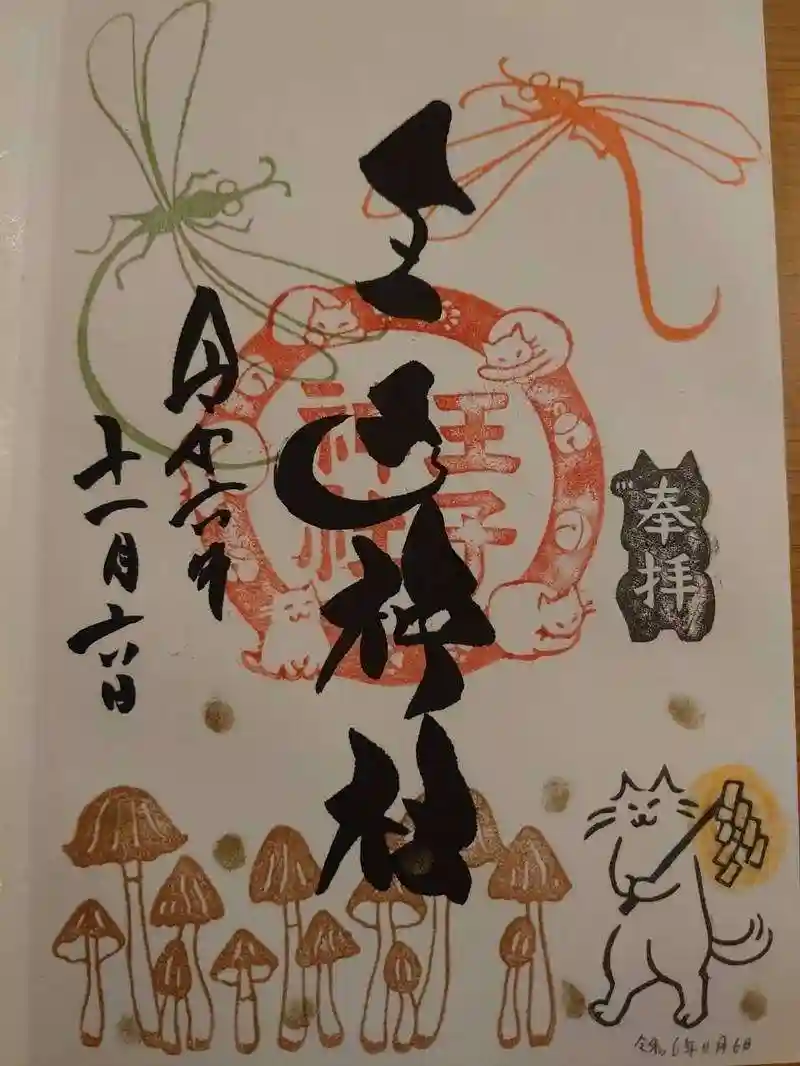 奉拝
王子神社
王子
神社
令和六年
十一月六日
令和6年11月6日